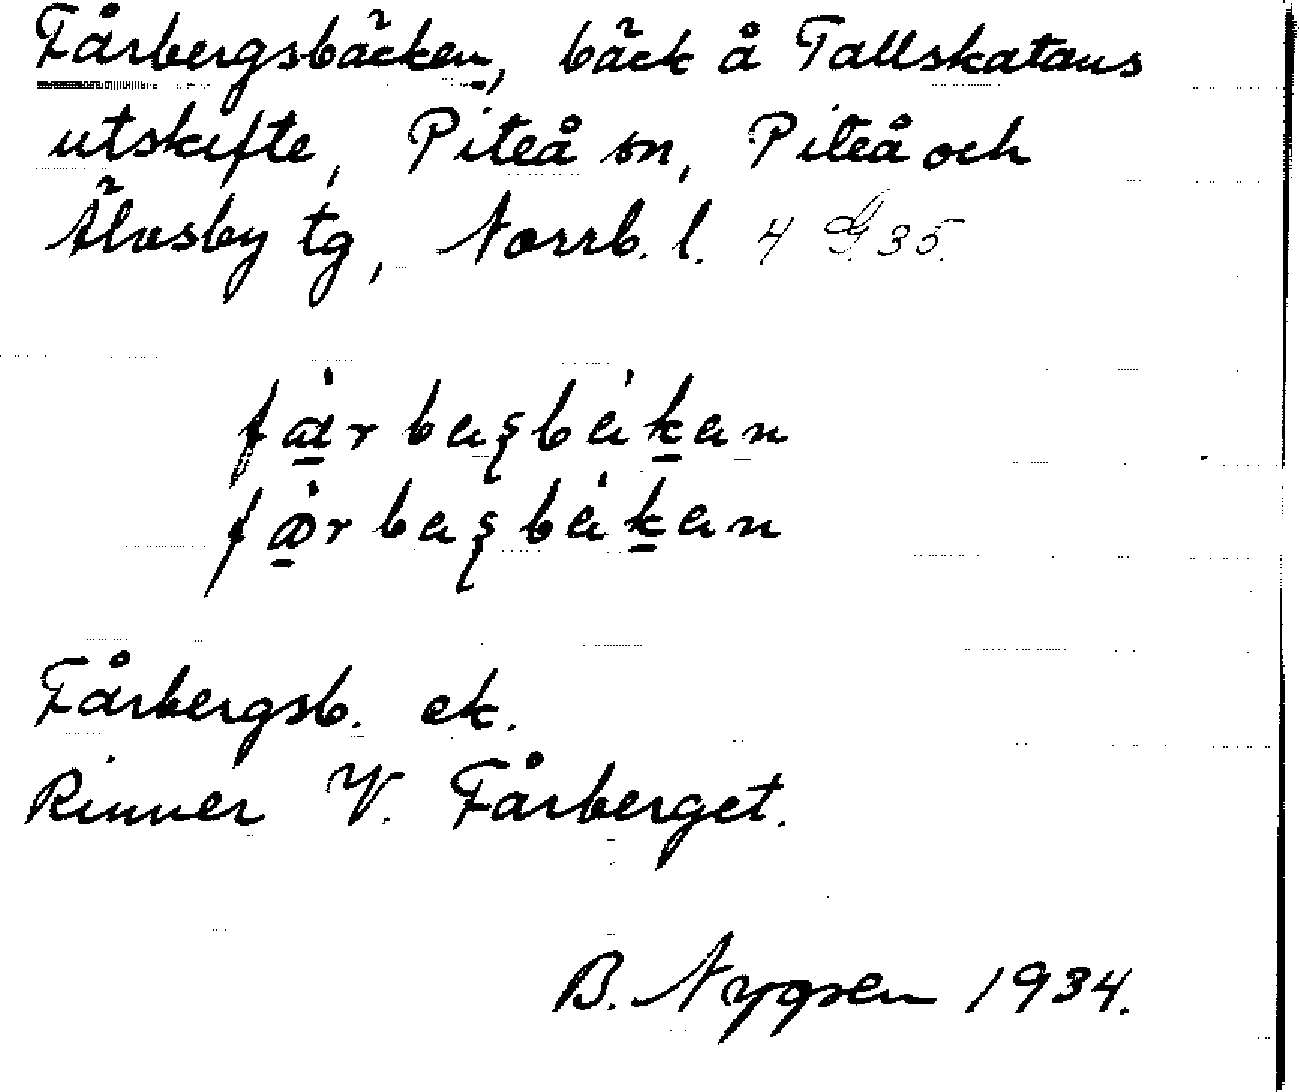 Fårbergsbäcken, bäck å Tallskatans
utskifte, Piteå sn, Piteå och
Älvsby tg, Norrb. l. 4 G 35.
Fårbergsb. ek.
Rinner V. Fårberget.
B. Nygren 1934.